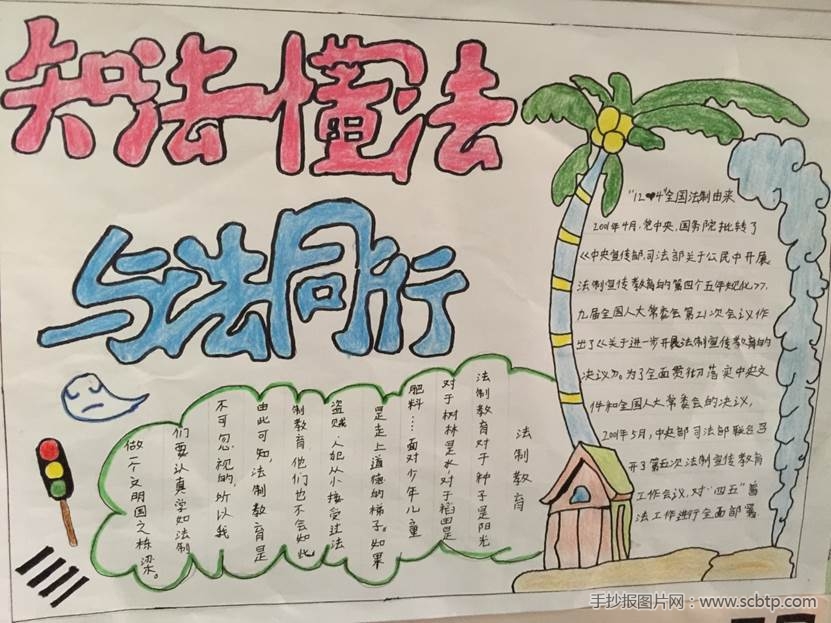 知法懂法
与法同行
"12❤4"全国法制由来
2001年4月,党中央,国务院批转了
《中央宣传部,司法部关于公民中开展
法制宣传教育的第四个五年规化》,
九届全国人大常委会第21次会议作
出了《关于进一步开展法制宣传教育的
决议》。为了全面贯彻落实中央文
件和全国人大常委会的决议,
2001年5月,中央部司法部联合召
开了第五次法制宣传教育
工作会议,对"四五"普
法工作进行全面部署.
法制教育
法制教育对于种子是阳光
对于树林是水,对于稻田是
肥料…面对少年儿童
是走上道德的梯子。如果
盗贼.人犯从小接受过法
制教育他们也不会如此
由此可知,法制教育是
不可忽视的,所以我
们要认真学如法制
做一个文明国之栋梁。
手抄报图片网:www.scbtp.com